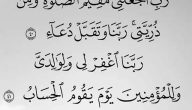 رَبِّ ٱجْعَلْنِى مُقِيمَ ٱلصَّلَوٰةِ وَمِن
ذُرِّيَّتِى ۚ رَبَّنَا وَتَقَبَّلْ دُعَآءِ
رَبَّنَا ٱغْفِرْ لِى وَلِوَٰلِدَىَّ
وَلِلْمُؤْمِنِينَ يَوْمَ يَقُومُ ٱلْحِسَابُ